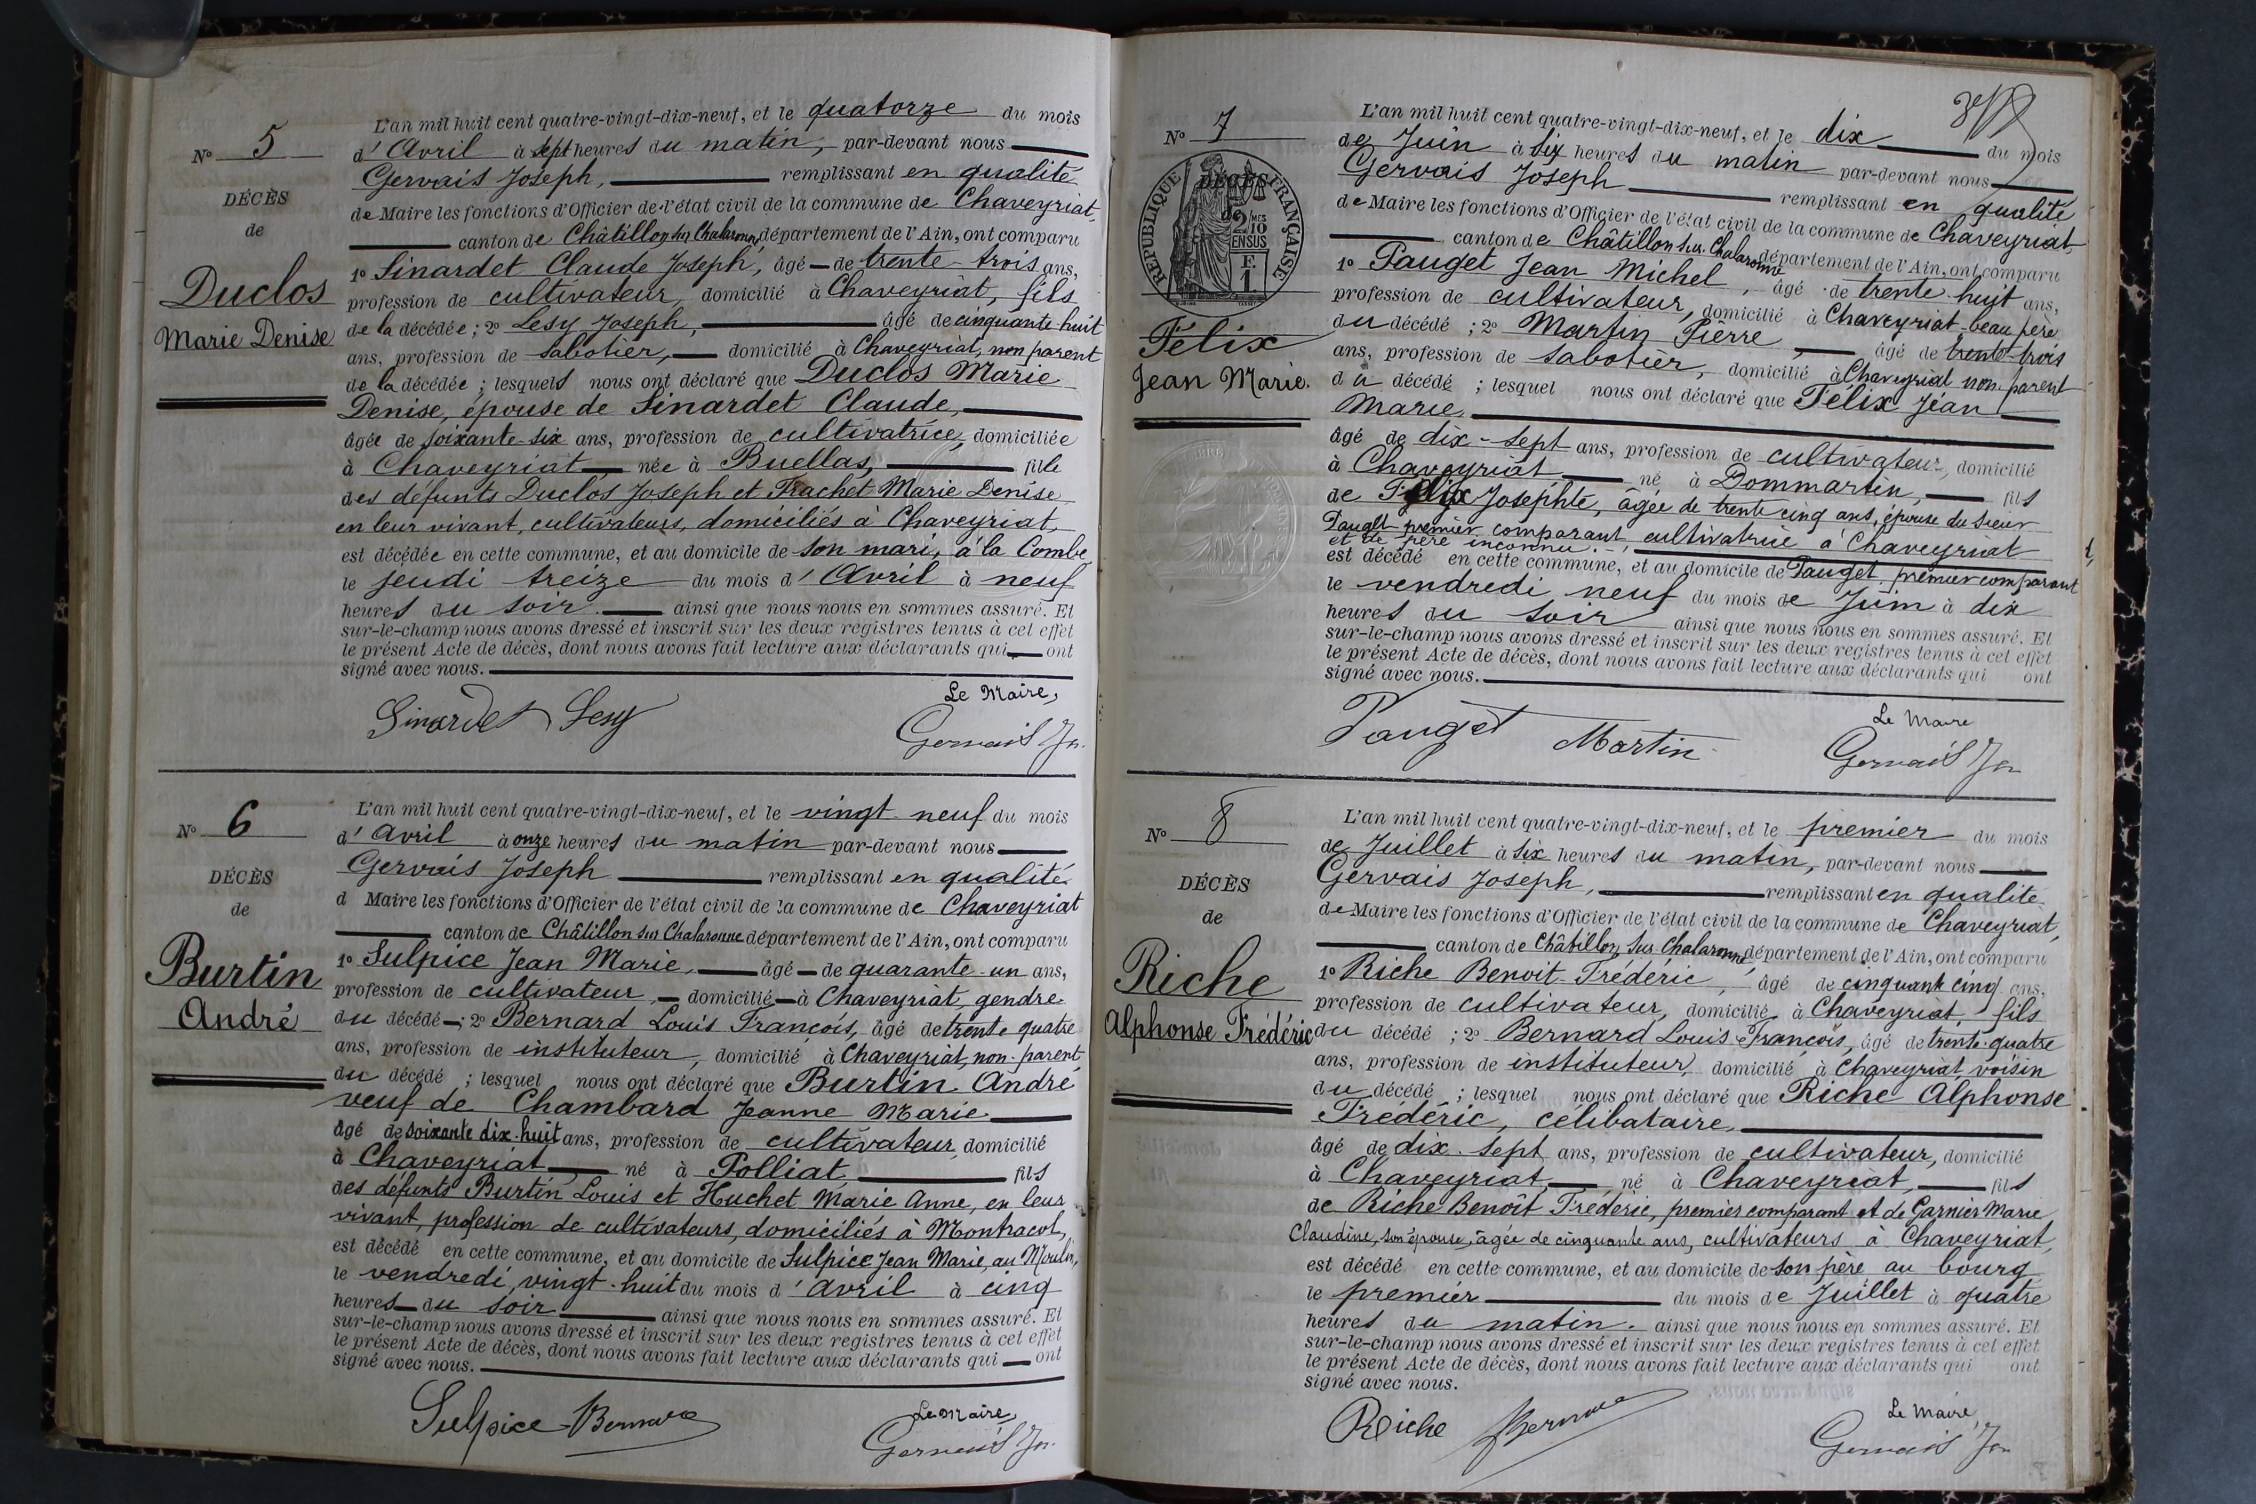 No 5
DÉCÈS
de
Duclos
Marie Denise
L'an mil huit cent quatre-vingt-dix-neuf, et le quatorze du mois
d'Avril à sept heures du matin, par-devant nous
Gervais Joseph, remplissant en qualité
de Maire les fonctions d'Officier de l'état civil de la commune de Chaveyriat,
canton de Châtillon sur Chalaronne, département de l'Ain, ont comparu
1o Sinardet Claude Joseph, âgé de trente-trois ans,
profession de cultivateur, domicilié à Chaveyriat, fils
de la décédée ; 2o Lesy Joseph, âgé de cinquante huit
ans, profession de sabotier, domicilié à Chaveyriat, non parent
de la décédée ; lesquels nous ont déclaré que Duclos Marie
Denise, épouse de Sinardet Claude,
âgée de soixante-six ans, profession de cultivatrice, domiciliée
à Chaveyriat née à Buellas, fille
des défunts Duclos Joseph et Trachet Marie Denise
en leur vivant, cultivateurs, domiciliés à Chaveyriat,
est décédée en cette commune, et au domicile de son mari, à la Combe
le jeudi treize du mois d'Avril à neuf
heures du soir ainsi que nous nous en sommes assuré. Et
sur-le-champ nous avons dressé et inscrit sur les deux registres tenus à cet effet
le présent Acte de décès, dont nous avons fait lecture aux déclarants qui ont
signé avec nous.
Le Maire,
Sinardet Lesy Gervais Jh
No 6
DÉCÈS
de
Burtin
André
L'an mil huit cent quatre-vingt-dix-neuf, et le vingt neuf du mois
d'avril à onze heures du matin par-devant nous
Gervais Joseph remplissant en qualité
d Maire les fonctions d'Officier de l'état civil de la commune de Chaveyriat
canton de Châtillon sur Chalaronne département de l'Ain, ont comparu
1o Sulpice Jean Marie, âgé de quarante-un ans,
profession de cultivateur, domicilié à Chaveyriat, gendre
du décédé ; 2o Bernard Louis François, âgé de trente quatre
ans, profession de instituteur, domicilié à Chaveyriat, non-parent
du décédé ; lesquel nous ont déclaré que Burtin André
veuf de Chambard Jeanne Marie
âgé de soixante dix-huit ans, profession de cultivateur, domicilié
à Chaveyriat né à Polliat, fils
des défunts Burtin Louis et Huchet Marie Anne, en leur
vivant, profession de cultivateurs, domiciliés à Montracol,
est décédé en cette commune, et au domicile de Sulpice Jean Marie, au Moulin,
le vendredi, vingt-huit du mois d'avril à cinq
heures du soir ainsi que nous nous en sommes assuré. Et
sur-le-champ nous avons dressé et inscrit sur les deux registres tenus à cet effet
le présent Acte de décès, dont nous avons fait lecture aux déclarants qui ont
signé avec nous.
Le Maire,
Sulpice Bernard Gervais Jh
No 7
DÉCÈS
de
RÉPUBLIQUE FRANÇAISE
2 MES
10
EN SUS
Félix
Jean Marie.
L'an mil huit cent quatre-vingt-dix-neuf, et le dix du mois
de Juin à six heures du matin par-devant nous
Gervais Joseph remplissant en qualité
de Maire les fonctions d'Officier de l'état civil de la commune de Chaveyriat,
canton de Châtillon sur Chalaronne département de l'Ain, ont comparu
1o Pauget Jean Michel, âgé de trente huit ans,
profession de cultivateur, domicilié à Chaveyriat beau père
du décédé ; 2o Martin Pierre, âgé de trente-trois
ans, profession de sabotier, domicilié à Chaveyriat non-parent
du décédé ; lesquel nous ont déclaré que Félix Jean
Marie,
âgé de dix-sept ans, profession de cultivateur, domicilié
à Chaveyriat né à Dommartin, fils
de Félix Josephte, âgée de trente cinq ans, épouse du sieur
Pauget premier comparant, cultivatrice à Chaveyriat
et de père inconnu.
est décédé en cette commune, et au domicile de Pauget, premier comparant
le vendredi neuf du mois de Juin à dix
heures du soir ainsi que nous nous en sommes assuré. Et
sur-le-champ nous avons dressé et inscrit sur les deux registres tenus à cet effet
le présent Acte de décès, dont nous avons fait lecture aux déclarants qui ont
signé avec nous.
Le Maire
Pauget Martin Gervais Jh
No 8
DÉCÈS
de
Riche
Alphonse Frédéric
L'an mil huit cent quatre-vingt-dix-neuf, et le premier du mois
de Juillet à six heures du matin, par-devant nous
Gervais Joseph, remplissant en qualité
de Maire les fonctions d'Officier de l'état civil de la commune de Chaveyriat,
canton de Châtillon sur Chalaronne, département de l'Ain, ont comparu
1o Riche Benoit Frédéric, âgé de cinquante cinq ans,
profession de cultivateur, domicilié à Chaveyriat, fils
du décédé ; 2o Bernard Louis François, âgé de trente-quatre
ans, profession de instituteur, domicilié à Chaveyriat, voisin
du décédé ; lesquel nous ont déclaré que Riche Alphonse
Frédéric, célibataire,
âgé de dix-sept ans, profession de cultivateur, domicilié
à Chaveyriat, né à Chaveyriat, fils
de Riche Benoît Frédéric, premier comparant et de Garnier Marie
Claudine, son épouse, âgée de cinquante ans, cultivateurs à Chaveyriat,
est décédé en cette commune, et au domicile de son père au bourg
le premier du mois de Juillet à quatre
heures du matin. ainsi que nous nous en sommes assuré. Et
sur-le-champ nous avons dressé et inscrit sur les deux registres tenus à cet effet
le présent Acte de décès, dont nous avons fait lecture aux déclarants qui ont
signé avec nous.
Le Maire,
Riche Bernard Gervais Jh